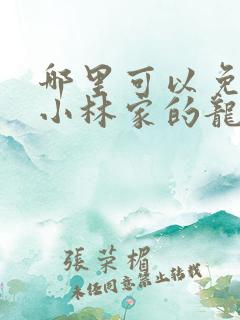 哪里可以免
小林家的龍
張荣楣
未经同意禁止转载